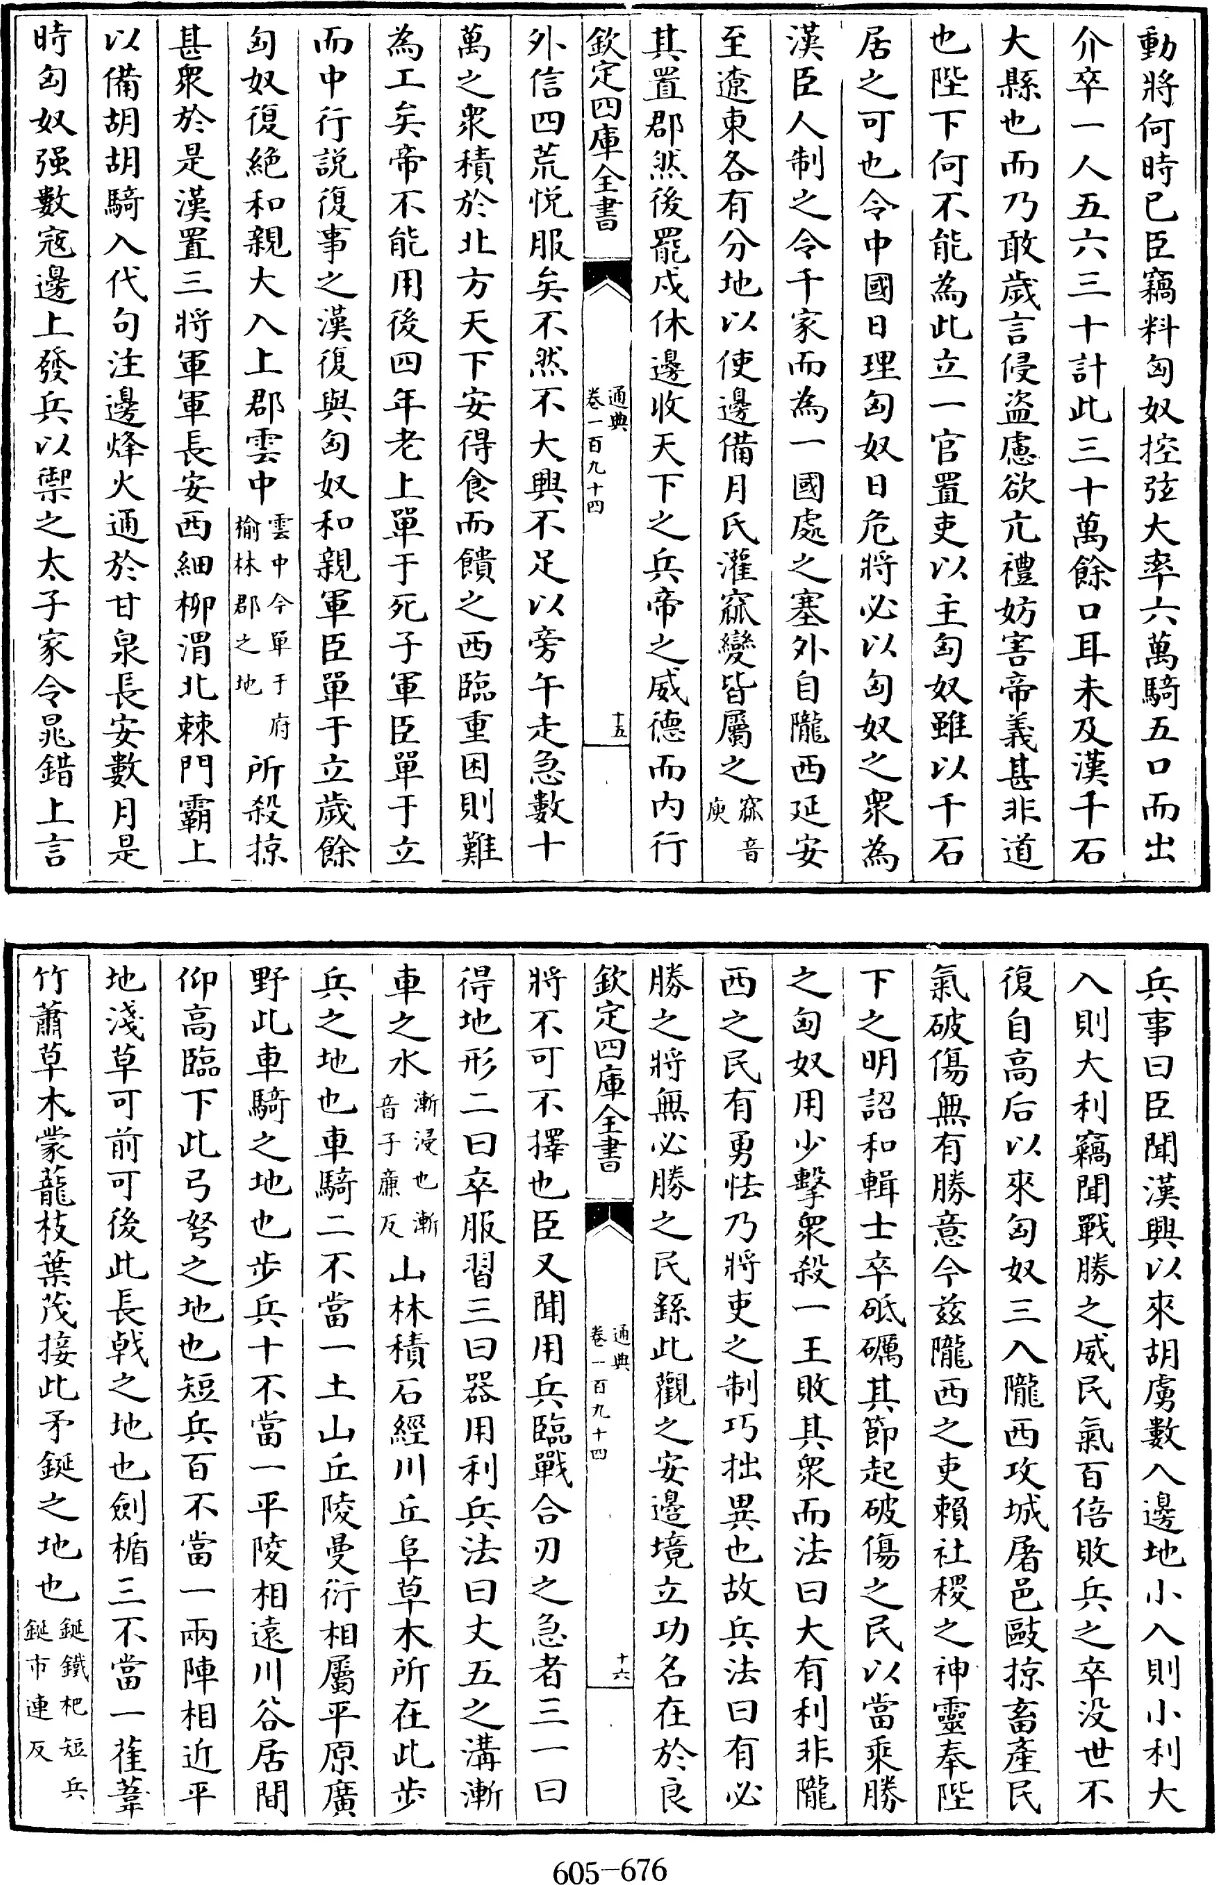 動將何時已臣竊料匈奴控弦大率六萬騎五口而出
介卒一人五六三十計此三十萬餘口耳未及漢千石
大縣也而乃敢歲言侵盜慮欲亢禮妨害帝義甚非道
也陛下何不能為此立一官置吏以主匈奴雖以千石
居之可也令中國日理匈奴日危將必以匈奴之衆為
漢臣人制之令千家而為一國處之塞外自隴西延安
至遼東各有分地以使邊備月氏灌窳變皆屬之窳音庾
其置郡然後罷戍休邊收天下之兵帝之威德而內行
欽定四庫全書 通典卷一百九十四 十五
外信四荒悅服矣不然不大興不足以旁午走急數十
萬之衆積於北方天下安得食而饋之西臨重困則難
為工矣帝不能用後四年老上單于死子軍臣單于立
而中行説復事之漢復與匈奴和親軍臣單于立歲餘
匈奴復絶和親大入上郡雲中雲中今單于府榆林郡之地所殺掠
甚衆於是漢置三將軍軍長安西細柳渭北棘門霸上
以備胡胡騎入代句注邊烽火通於甘泉長安數月是
時匈奴强數寇邊上發兵以禦之太子家令鼂錯上言
兵事曰臣聞漢興以來胡虜數入邊地小入則小利大
入則大利竊聞戰勝之威民氣百倍敗兵之卒没世不
復自高后以來匈奴三入隴西攻城屠邑毆掠畜產民
氣破傷無有勝意今茲隴西之吏賴社稷之神靈奉陛
下之明詔和輯士卒砥礪其節起破傷之民以當乘勝
之匈奴用少擊衆殺一王敗其衆而法曰大有利非隴
西之民有勇怯乃將吏之制巧拙異也故兵法曰有必
勝之將無必勝之民繇此觀之安邊境立功名在於良
欽定四庫全書 通典卷一百九十四 十六
將不可不擇也臣又聞用兵臨戰合刃之急者三一曰
得地形二曰卒服習三曰器用利兵法曰丈五之溝漸
車之水漸浸也漸音子廉反山林積石經川丘阜草木所在此步
兵之地也車騎二不當一土山丘陵曼衍相屬平原廣
野此車騎之地也步兵十不當一平陵相遠川谷居間
仰高臨下此弓弩之地也短兵百不當一兩陣相近平
地淺草可前可後此長戟之地也劍楯三不當一萑葦
竹蕭草木蒙蘢枝葉茂接此矛鋋之地也鋋鐵杷短兵鋋市連反
605-676